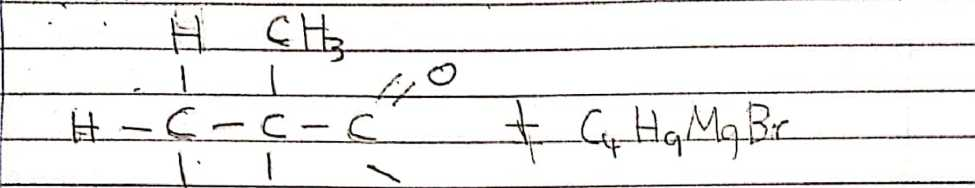 H CH₃
O
H - C - C - C + C₄H₉MgBr